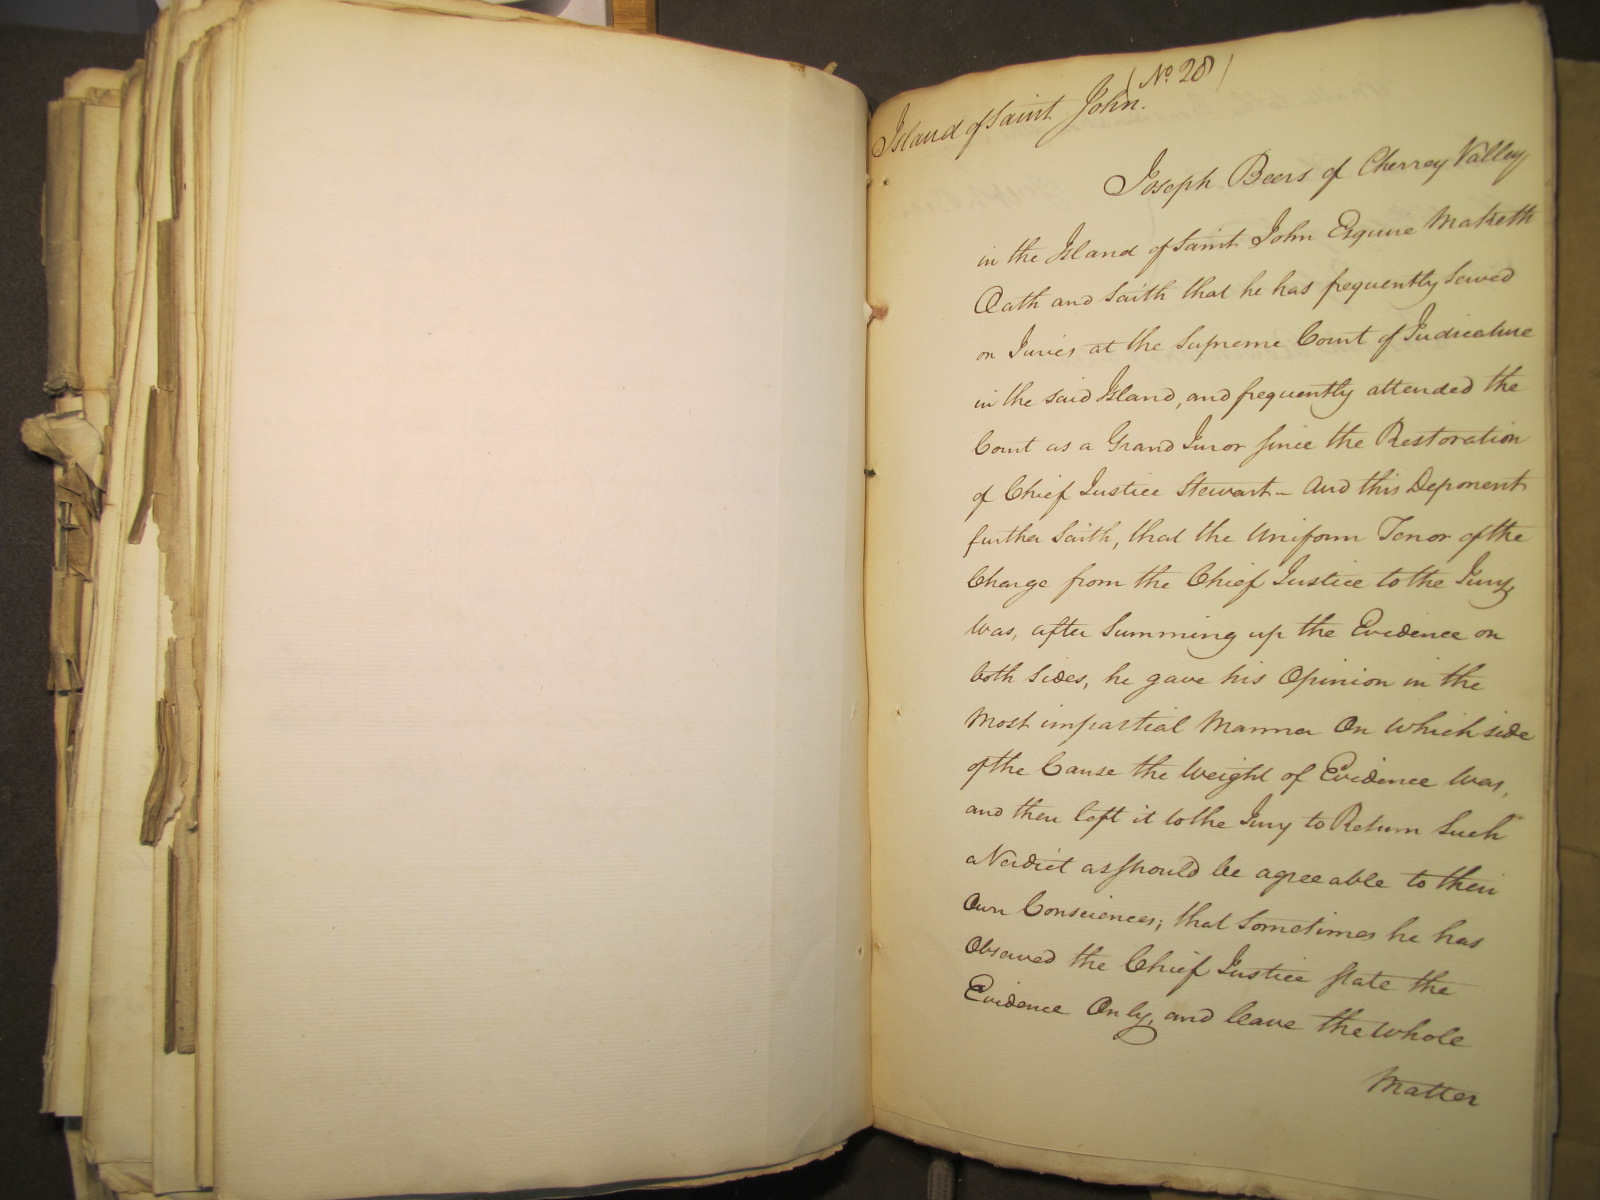 (No. 28)
Island of Saint John.
Joseph Beers of Cherrey Valley
in the Island of Saint John Esquire Maketh
Oath and Saith that he has frequently Served
on Juries at the Supreme Court of Judicature
in the said Island, and frequently attended the
Court as a Grand Juror since the Restoration
of Chief Justice Stewart - And this Deponent
further Saith, that the Uniform Tenor of the
Charge from the Chief Justice to the Jury
Was, after Summing up the Evidence on
both Sides, he gave his Opinion in the
Most impartial Manner On Which side
of the Cause the Weight of Evidence Was,
and then left it to the Jury to Return Such
a Verdict as should be agreeable to their
Own Consciences; that Sometimes he has
Observed the Chief Justice state the
Evidence Only, and leave the Whole
Matter